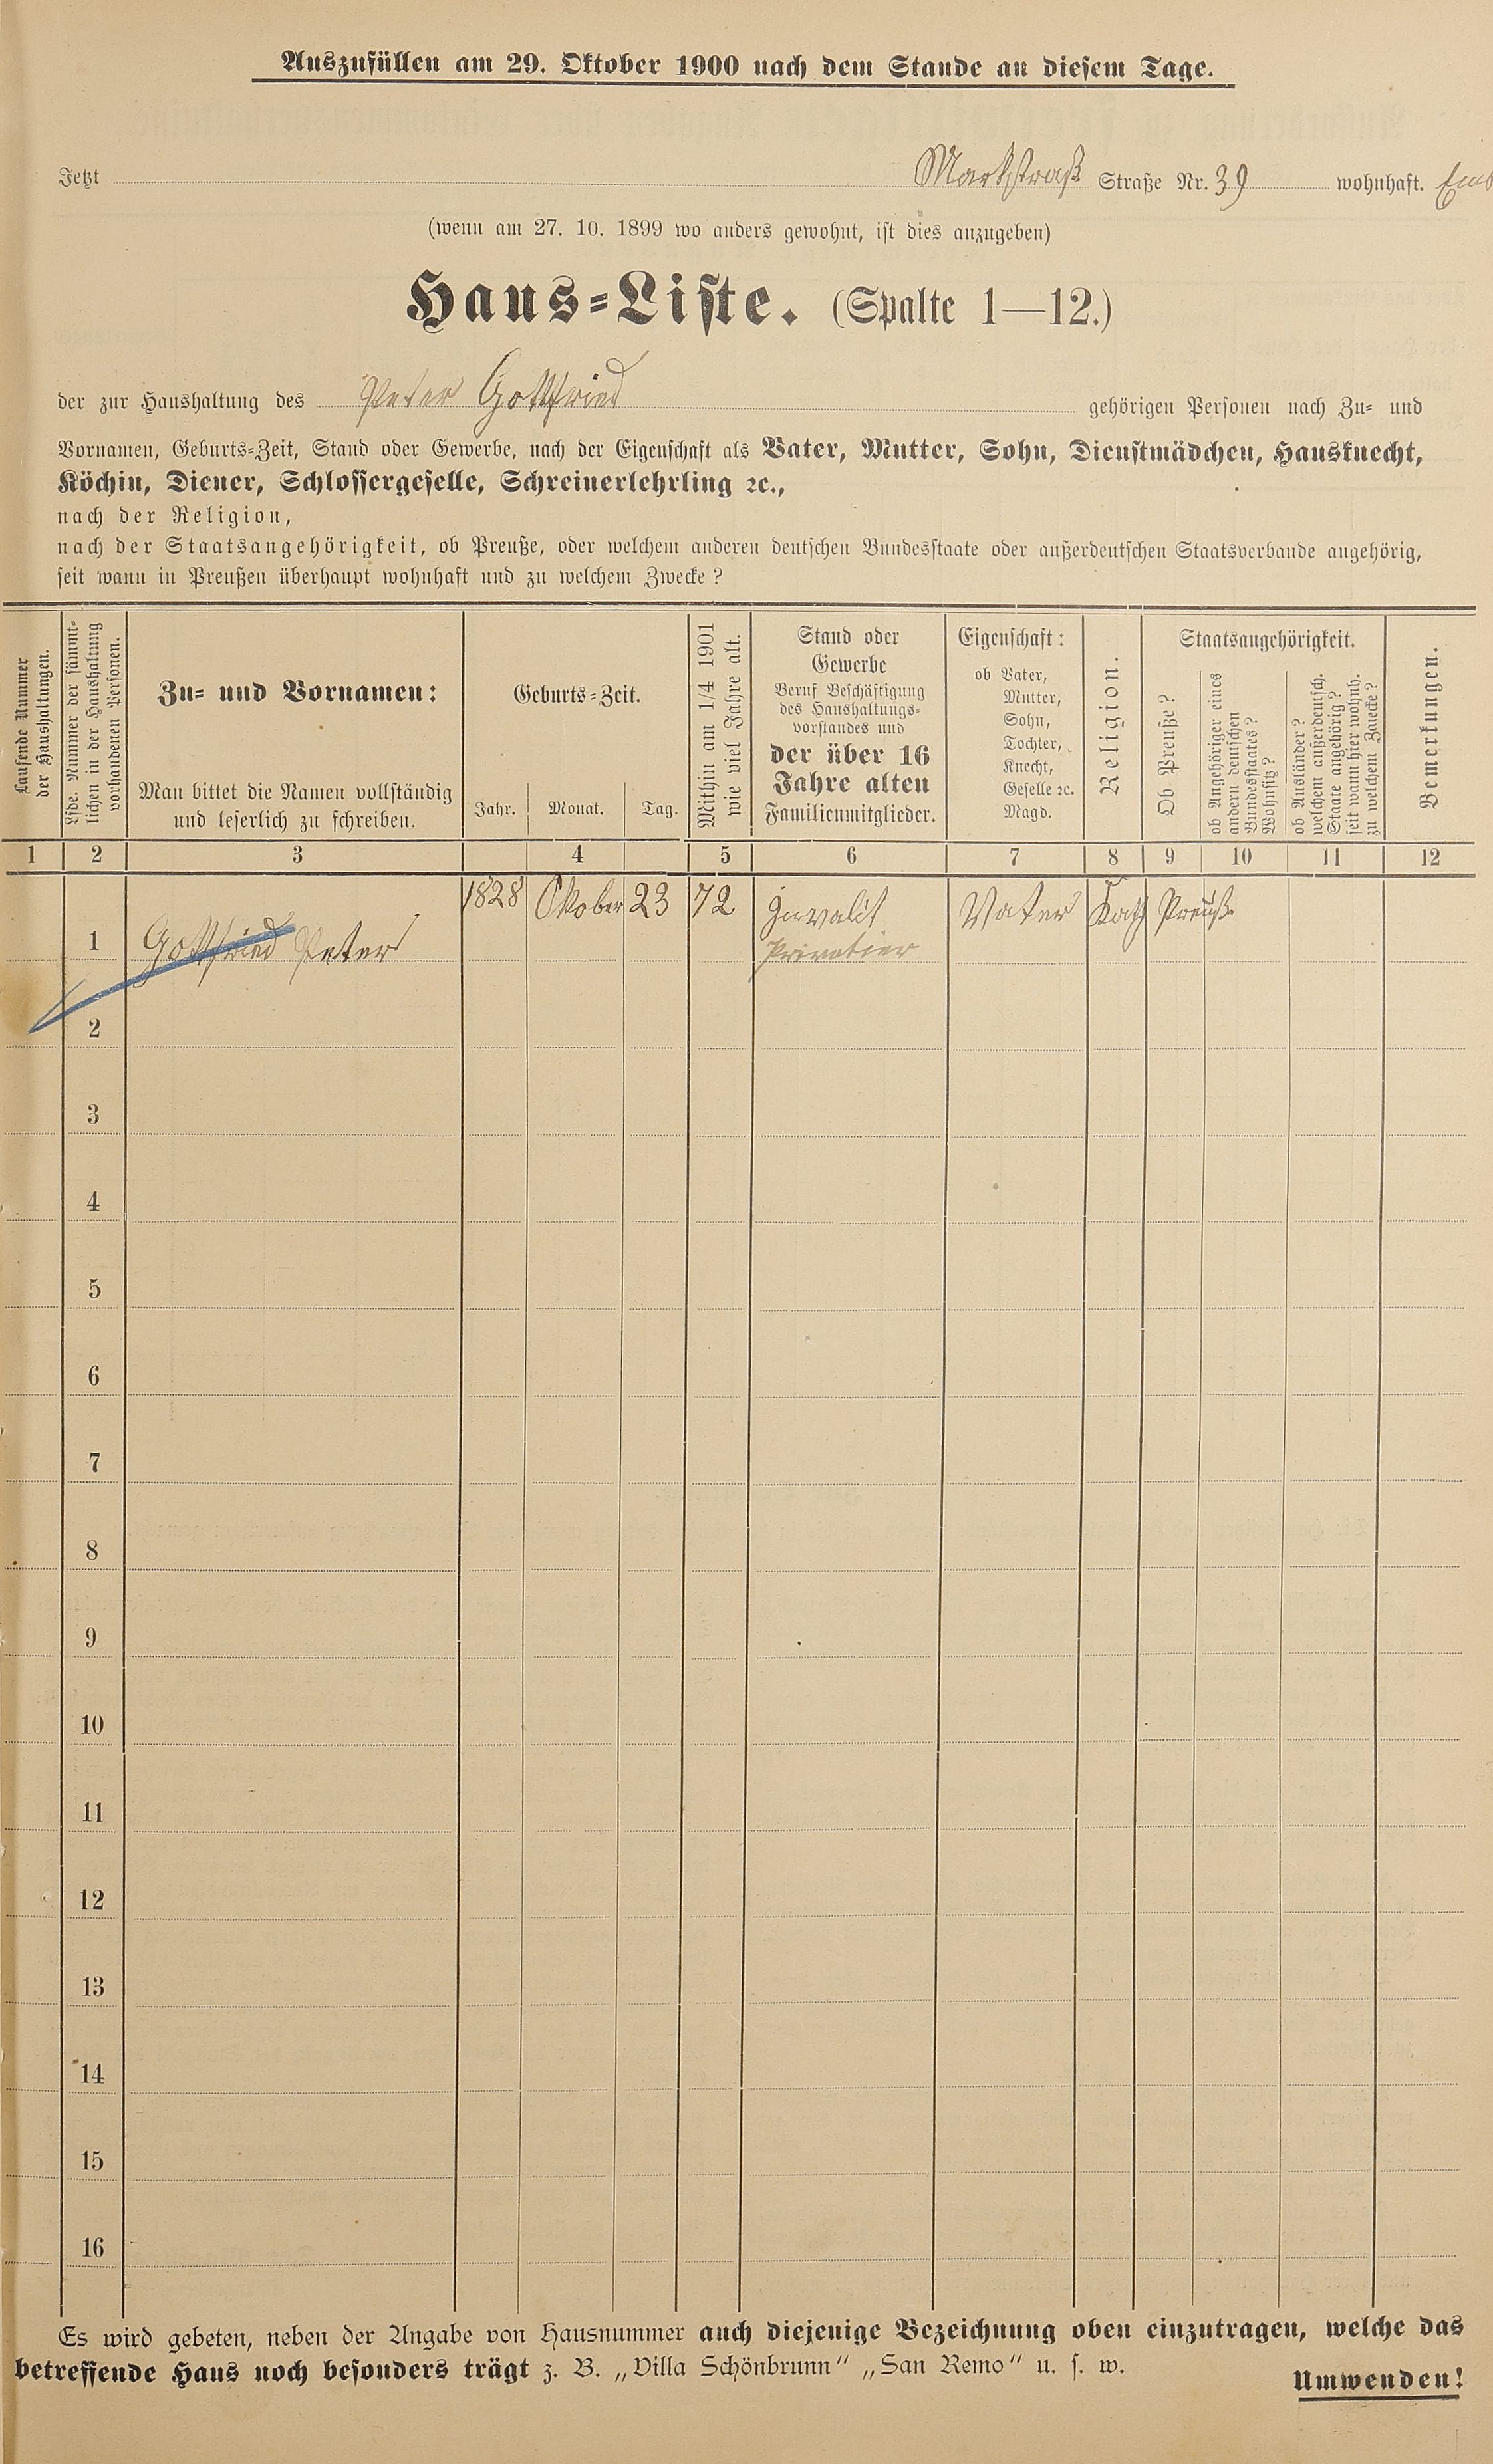 Auszufüllen am 29. Oktober 1900 nach dem Stande an diesem Tage.
Jetzt Markstraß Straße Nr. 39 wohnhaft. Ems
(wenn am 27. 10. 1899 wo anders gewohnt, ist dies anzugeben)
Haus-Liste. (Spalte 1—12.)
der zur Haushaltung des Peter Gottfried gehörigen Personen nach Zu- und
Vornamen, Geburts-Zeit, Stand oder Gewerbe, nach der Eigenschaft als Vater, Mutter, Sohn, Dienstmädchen, Hausknecht,
Köchin, Diener, Schlossergeselle, Schreinerlehrling ꝛc.,
nach der Religion,
nach der Staatsangehörigkeit, ob Preuße, oder welchem anderen deutschen Bundesstaate oder außerdeutschen Staatsverbande angehörig,
seit wann in Preußen überhaupt wohnhaft und zu welchem Zwecke?
Laufende Nummer
der Haushaltungen.
Lfde. Nummer der sämmt-
lichen in der Haushaltung
vorhandenen Personen.
Zu- und Vornamen:
Man bittet die Namen vollständig
und leserlich zu schreiben.
Geburts-Zeit.
Jahr. Monat. Tag.
Mithin am 1/4 1901
wie viel Jahre alt.
Stand oder
Gewerbe
Beruf Beschäftigung
des Haushaltungs-
vorstandes und
der über 16
Jahre alten
Familienmitglieder.
Eigenschaft:
ob Vater,
Mutter,
Sohn,
Tochter,
Knecht,
Geselle ꝛc.
Magd.
Religion.
Staatsangehörigkeit.
Ob Preuße?
ob Angehöriger eines
andern deutschen
Bundesstaates?
Wohnsitz?
ob Ausländer?
welchem außerdeutsch.
Staate angehörig?
seit wann hier wohnh.
zu welchem Zwecke?
Bemerkungen.
1 2 3 4 5 6 7 8 9 10 11 12
1 Gottfried Peter 1828 Oktober 23 72 Invalit Vater Kath Preuße
Privatier
2
3
4
5
6
7
8
9
10
11
12
13
14
15
16
Es wird gebeten, neben der Angabe von Hausnummer auch diejenige Bezeichnung oben einzutragen, welche das
betreffende Haus noch besonders trägt z. B. „Villa Schönbrunn“ „San Remo“ u. s. w.
Umwenden!